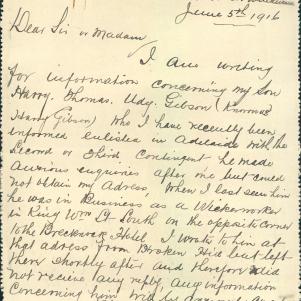 June 5th 1916
Dear Sir or Madam
I am writing
for information concerning my Son
Harry. Thomas. Udy. Gibson (Known as
Harry Gibson) Who I have recently been
informed enlisted in Adelaide with the
Second or Third, Contingent he made
Anxious enquiries after one but could
not obtain my Adress, When I last seen him
he was in Business as a Wickerworker
in King Wm St South on the opposite corner
to the Brecknock Hotel, I wrote to him at
that address from Broken Hill but left
there Shortly after and therefore did
not receive any reply, Any information
Concerning him will be